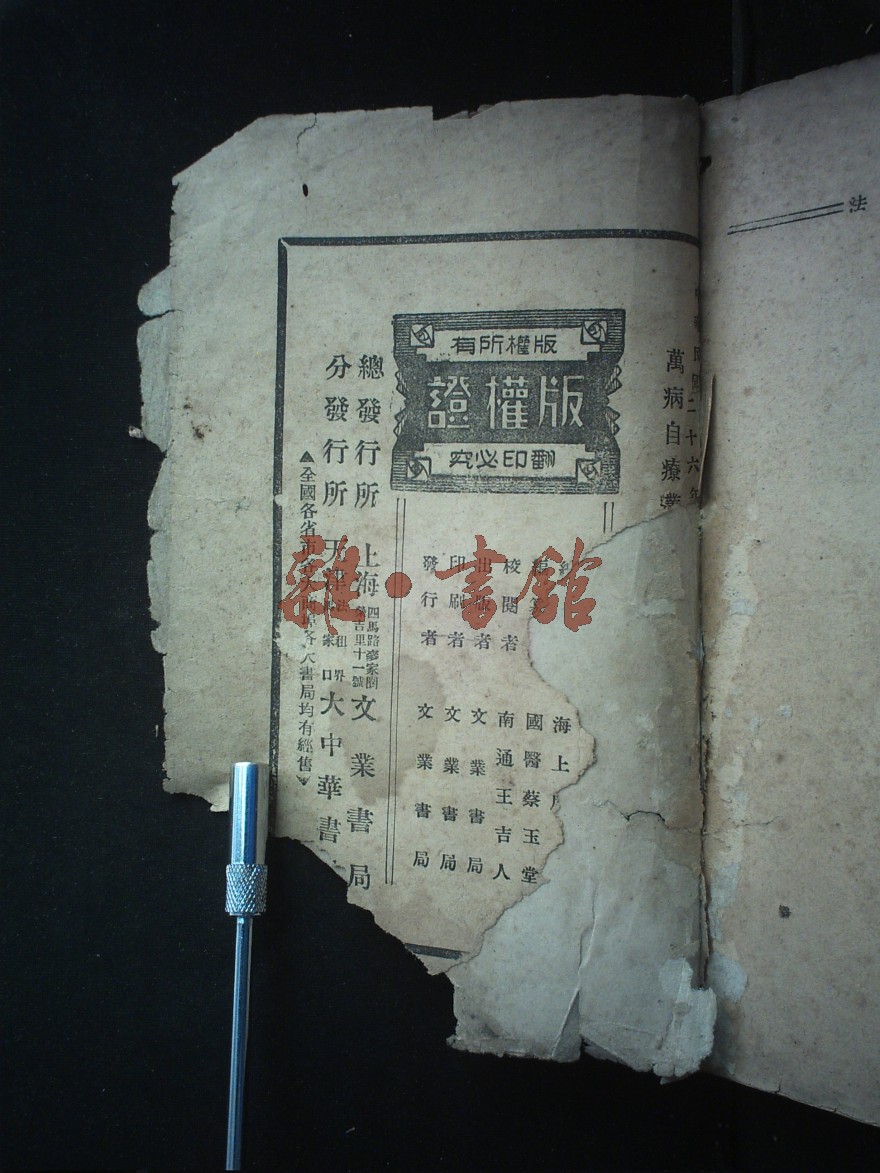 法
二十六年
萬病自療叢
版權所有
版權證
翻印必究
海上
編 國醫蔡玉堂
校閱者 南通王吉人
出版者 文業書局
印刷者 文業書局
發行者 文業書局
總發行所 上海 四馬路 家圈 吉里十一號 文業書局
分發行所 天津 法租界 家口 大中華書
▲全國各省市各大 各大書局均有經售▼
雜·書館